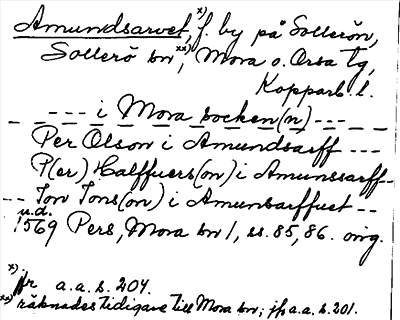 Amundsarvet,*) f. by på Sollerön,
Sollerö sn,**) Mora o. Orsa tg,
Kopparb. l.
--- i Mora socken(n) ---
Per Olson i Amundsarff ---
P(er) Halffuers(on) i Amunssarff--
-- Jon Jons(on) i Amunsarffuet --
u.d.
1569 Pers, Mora sn 1, ss. 85, 86. orig.
*) jfr a.a. s. 204.
**) räknades tidigare till Mora sn; jfr a.a. s. 201.